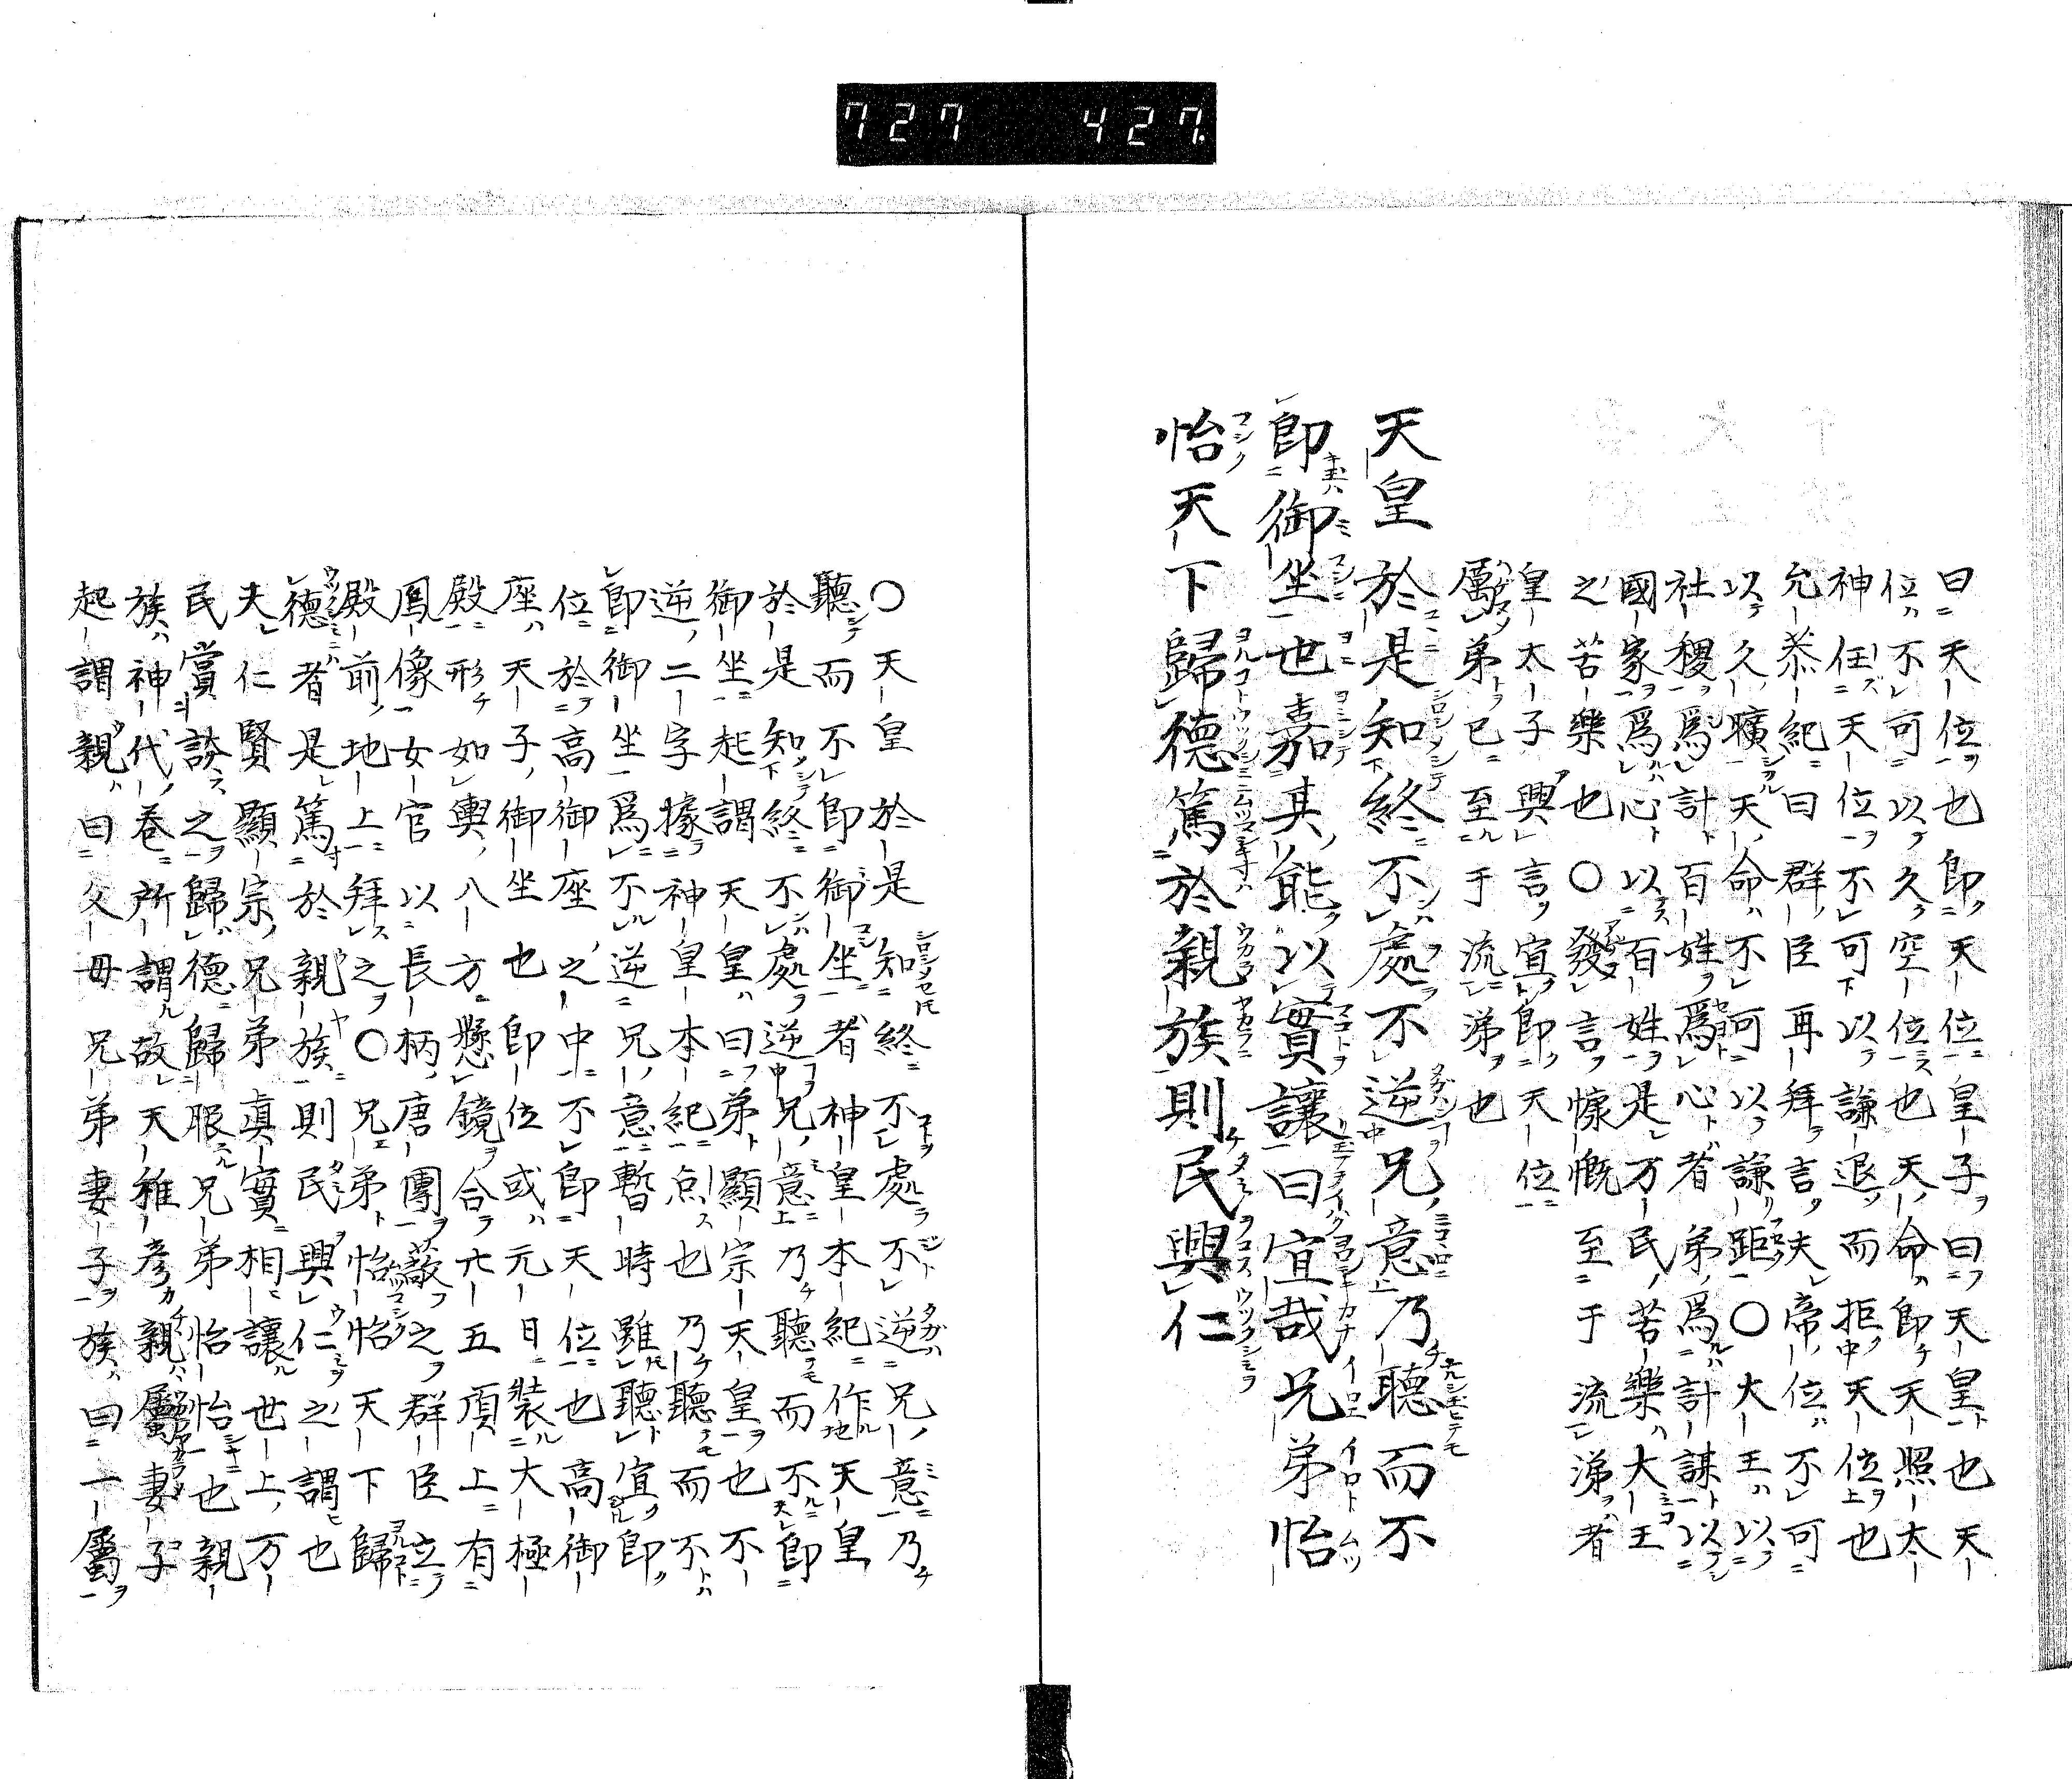 727 427.
曰天位也即天位皇子曰天皇也天
位不可以久空位也天命即天照太
神任天位不可以謙退而拒天位也
允恭紀曰群臣再拜言夫帝位不可
以久曠天命不可以謙距〇大王以
社稷為計百姓為心者弟為計謀以
國家為心以百姓是万民苦樂大王
之苦樂也〇發言慷慨至于流涕者
皇太子興言宜即天位
厲弟已至于流涕也
天皇於是知終不處不逆兄意乃聽而不
即御坐也嘉其能以實讓曰宜哉兄弟怡
怡天下歸德篤於親族則民興仁
〇天皇於是知終不處不逆兄意乃
聽而不即御坐者神皇本紀作天皇
於是知終不處逆兄意乃聽而不即
御坐起謂天皇曰弟顯宗天皇也不
逆二字據神皇本紀点也乃聽而不
即御坐為不逆兄意暫時雖聽宜即
位於高御座之中不即天位也高御
座天子御坐也即位或元日裝大極
殿形如輿八方懸鏡合六五頂上有
鳳像女官以長柄唐團蔽之群臣立
殿前地上拜之〇兄弟怡怡天下歸
德者是篤於親族則民興仁之謂也
夫仁賢顯宗兄弟真實相讓世上万
民賞談之歸德歸服兄弟怡怡也親
族神代卷所謂故天稚彥親屬妻子
起謂親曰父母兄弟妻子族曰一屬